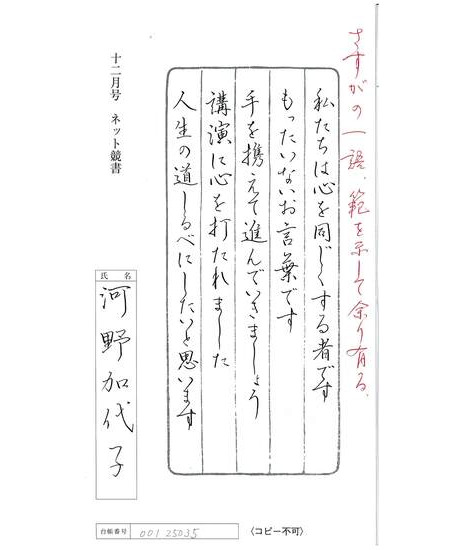 さすがの一語、範を示して余り有る。
私たちは心を同じくする者です
もったいないお言葉です
手を携えて進んでいきましょう
講演に心を打たれました
人生の道しるべにしたいと思います
十二月号 ネット競書
氏名
河野加代子
台帳番号 00125035
〈コピー不可〉